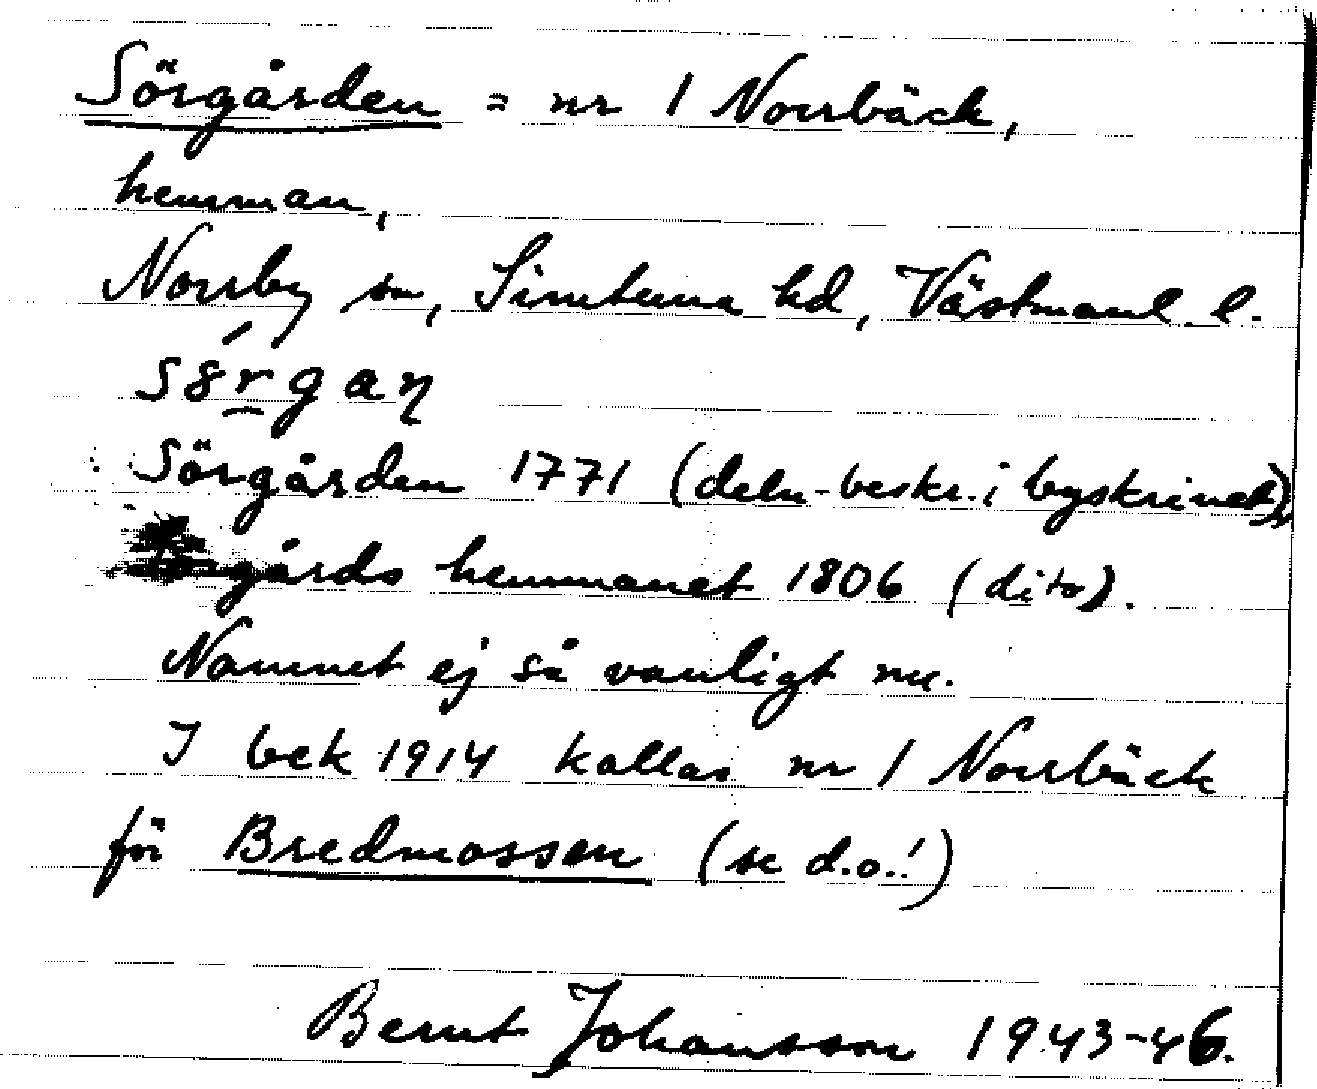 Sörgården = nr 1 Norrbäck,
hemman,
Norrby sn, Simtuna hd, Västmanl. l.
Sörgården 1771 (deln-beskr. i byskrinet),
gårds hemmanet 1806 (dito).
Namnet ej så vanligt nu.
I bek 1914 kallas nr 1 Norrbäck
för Bredmossen (se d.o.!)
Bernt Johansson 1943-46.